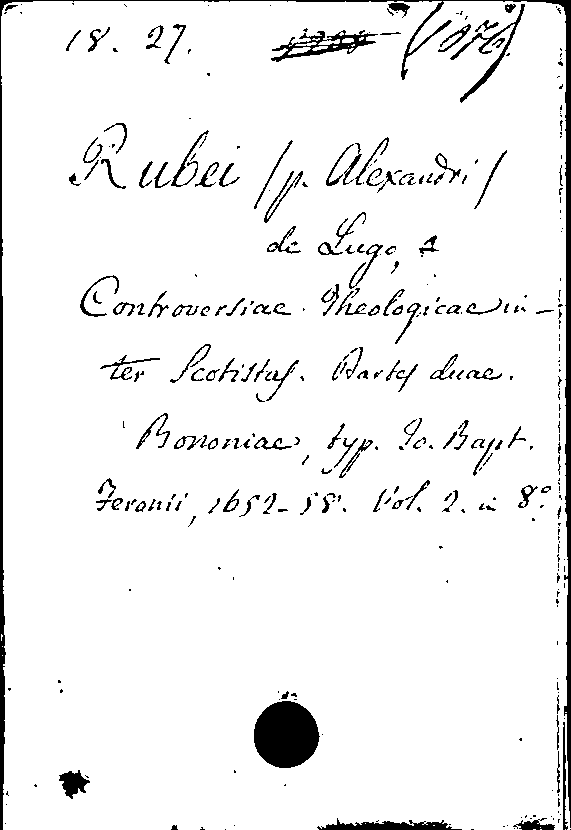 18. 27. (1876)
Rubei /p. Alexandri/
de Lugo,
Controversiae Theologicae in-
ter Scotistas. Partes duae.
Bononiae, typ. Io. Bapt.
Feronii, 1652-58. Vol. 2. in 8º.